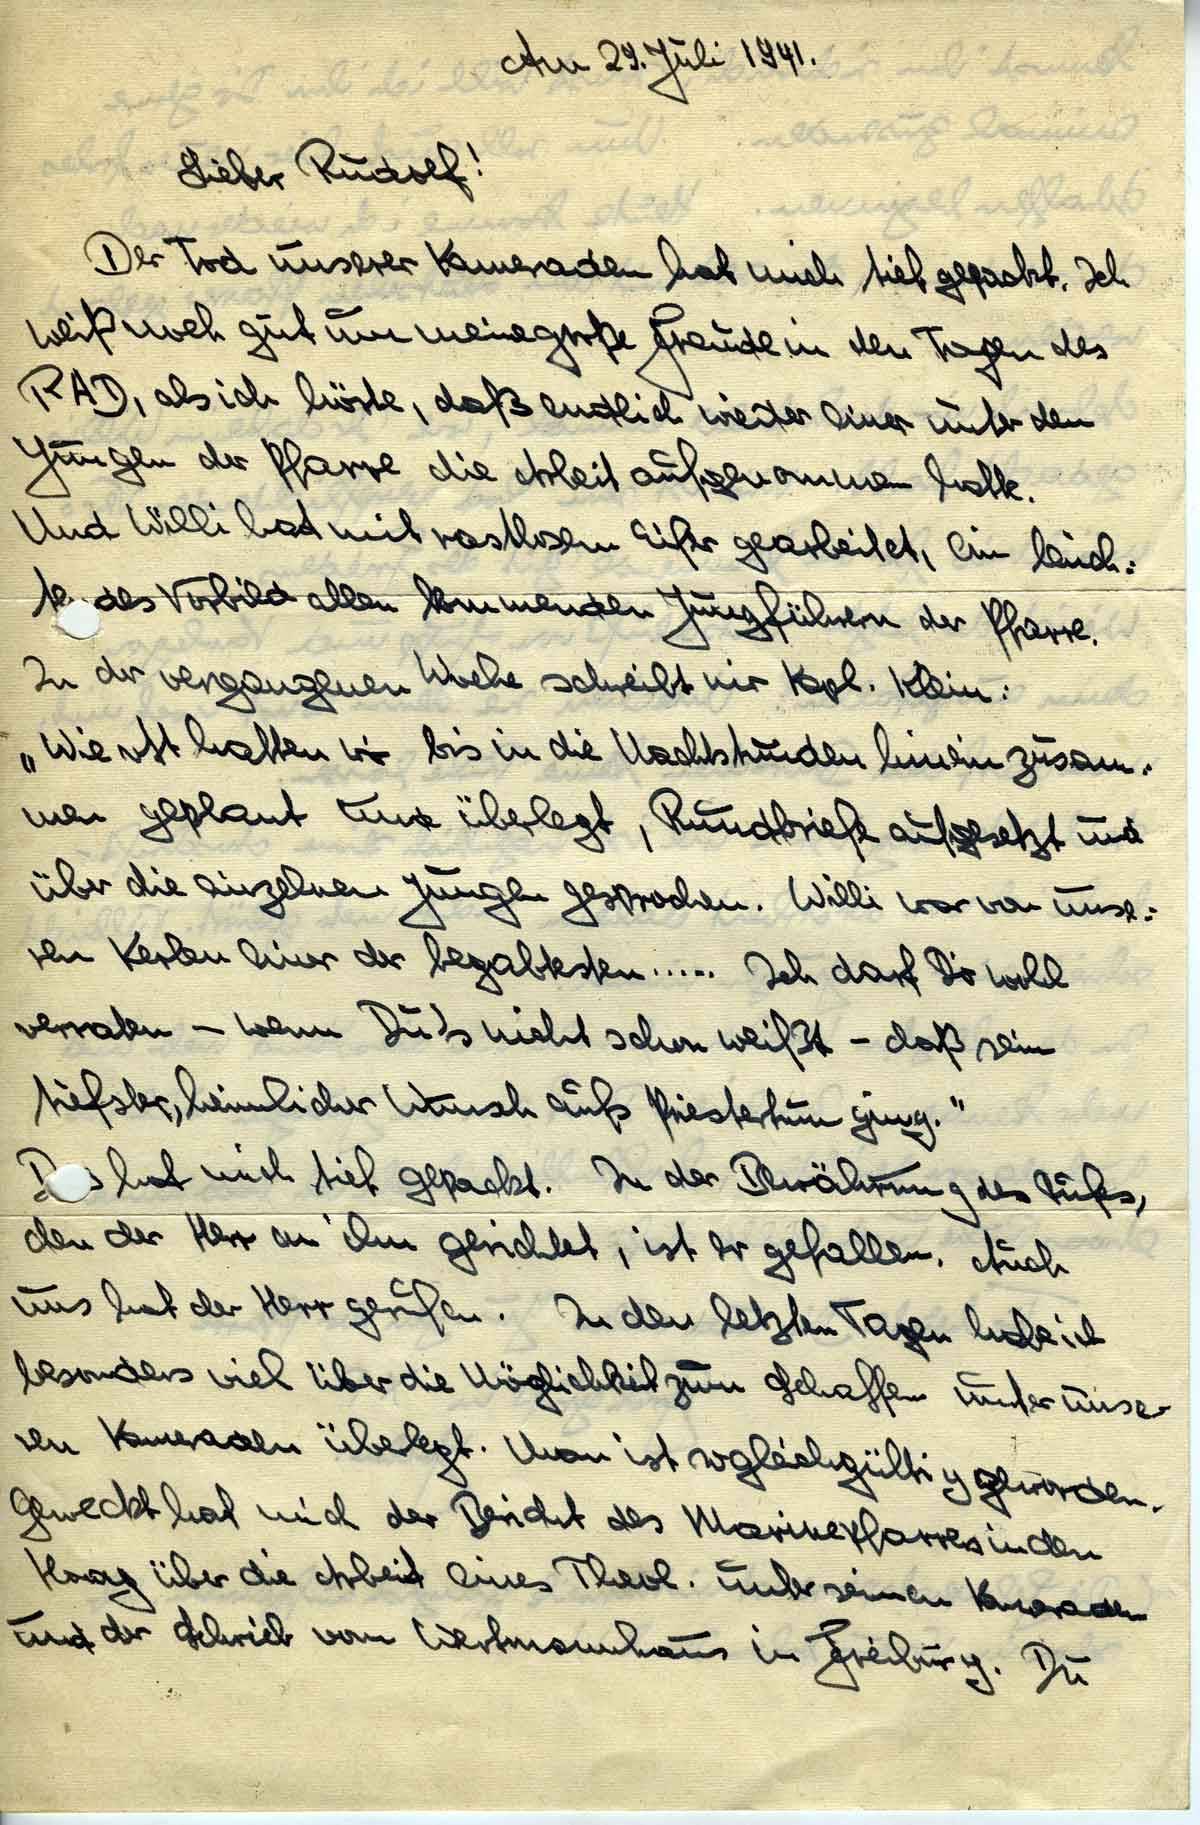 Am 29. Juli 1941.
Lieber Rudolf!
Der Tod unserer Kameraden hat mich tief gepackt. Ich
weiß noch gut um meine große Freude in den Tagen des
RAD, als ich hörte, daß endlich wieder einer unter den
Jungen der Pfarre die Arbeit aufgenommen hatte.
Und Willi hat mit rastlosem Eifer gearbeitet, ein leuch:
tendes Vorbild allen kommenden Jungführern der Pfarre.
In der vergangenen Woche schreibt mir Kapl. Klein:
„Wie oft hatten wir bis in die Nachtstunden hinein zusam:
men geplant und überlegt, Rundbriefe aufgesetzt und
über die einzelnen Jungen gesprochen. Willi war von unse:
ren Kerlen einer der begabtesten..... Ich darf Dir wohl
verraten – wenn Du's nicht schon weißt – daß sein
tiefster, heimlicher Wunsch aufs Priestertum ging."
Das hat mich tief gepackt. In der Bewährung des Rufes,
den der Herr an ihn gerichtet, ist er gefallen. Auch
uns hat der Herr gerufen. In den letzten Tagen habe ich
besonders viel über die Möglichkeit zum Schaffen unter unse-
ren Kameraden überlegt. Man ist so gleichgültig geworden.
Geweckt hat mich der Bericht des Marinepfarres in den
Haag über die Arbeit eines Theol. unter seinen Kameraden
und der Schrieb vom Werthmannhaus in Freiburg. Du